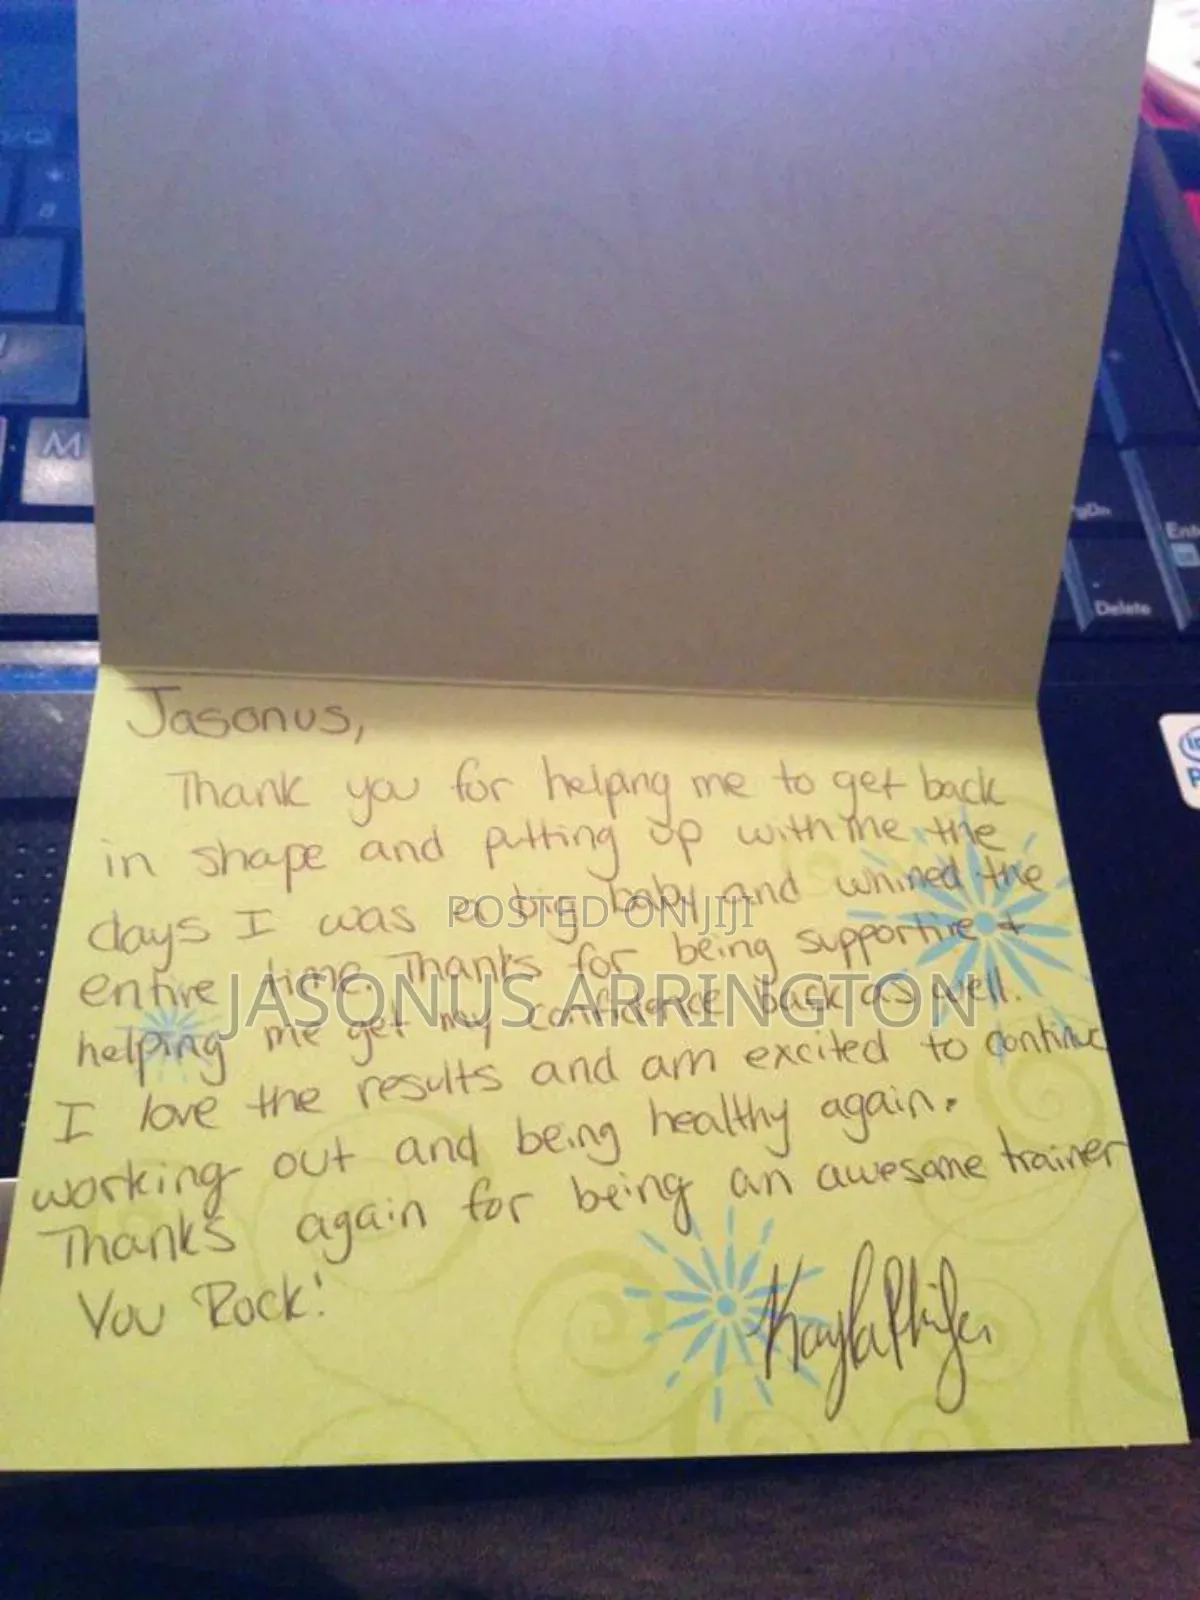 M
PgDn
Ente
Delete
Jasonus,
Thank you for helping me to get back
in shape and putting up with me the
days I was a big baby and whined the
entire time. Thanks for being supportive +
helping me get my confidence back as well.
I love the results and am excited to continue
working out and being healthy again.
Thanks again for being an awesome trainer
You Rock!
POSTED ON JIJI
JASONUS ARRINGTON